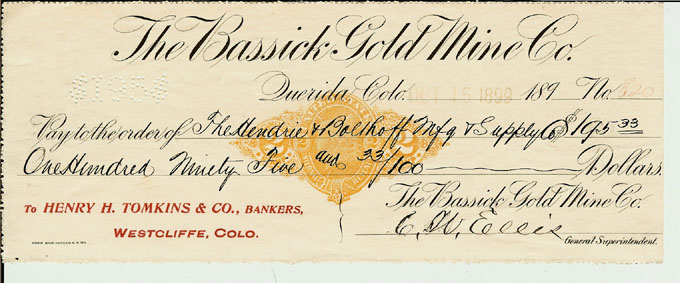 The Bassick Gold Mine Co.
$195$
Querida, Colo. OCT 15 1899 189 No. 820
Pay to the order of The Hendrie & Bolthoff Mfg & Supply Co $195 33
One Hundred Ninety Five and 33/100 Dollars.
The Bassick Gold Mine Co.
To HENRY H. TOMKINS & CO., BANKERS,
WESTCLIFFE, COLO.
C. W. Ellis
General Superintendent.